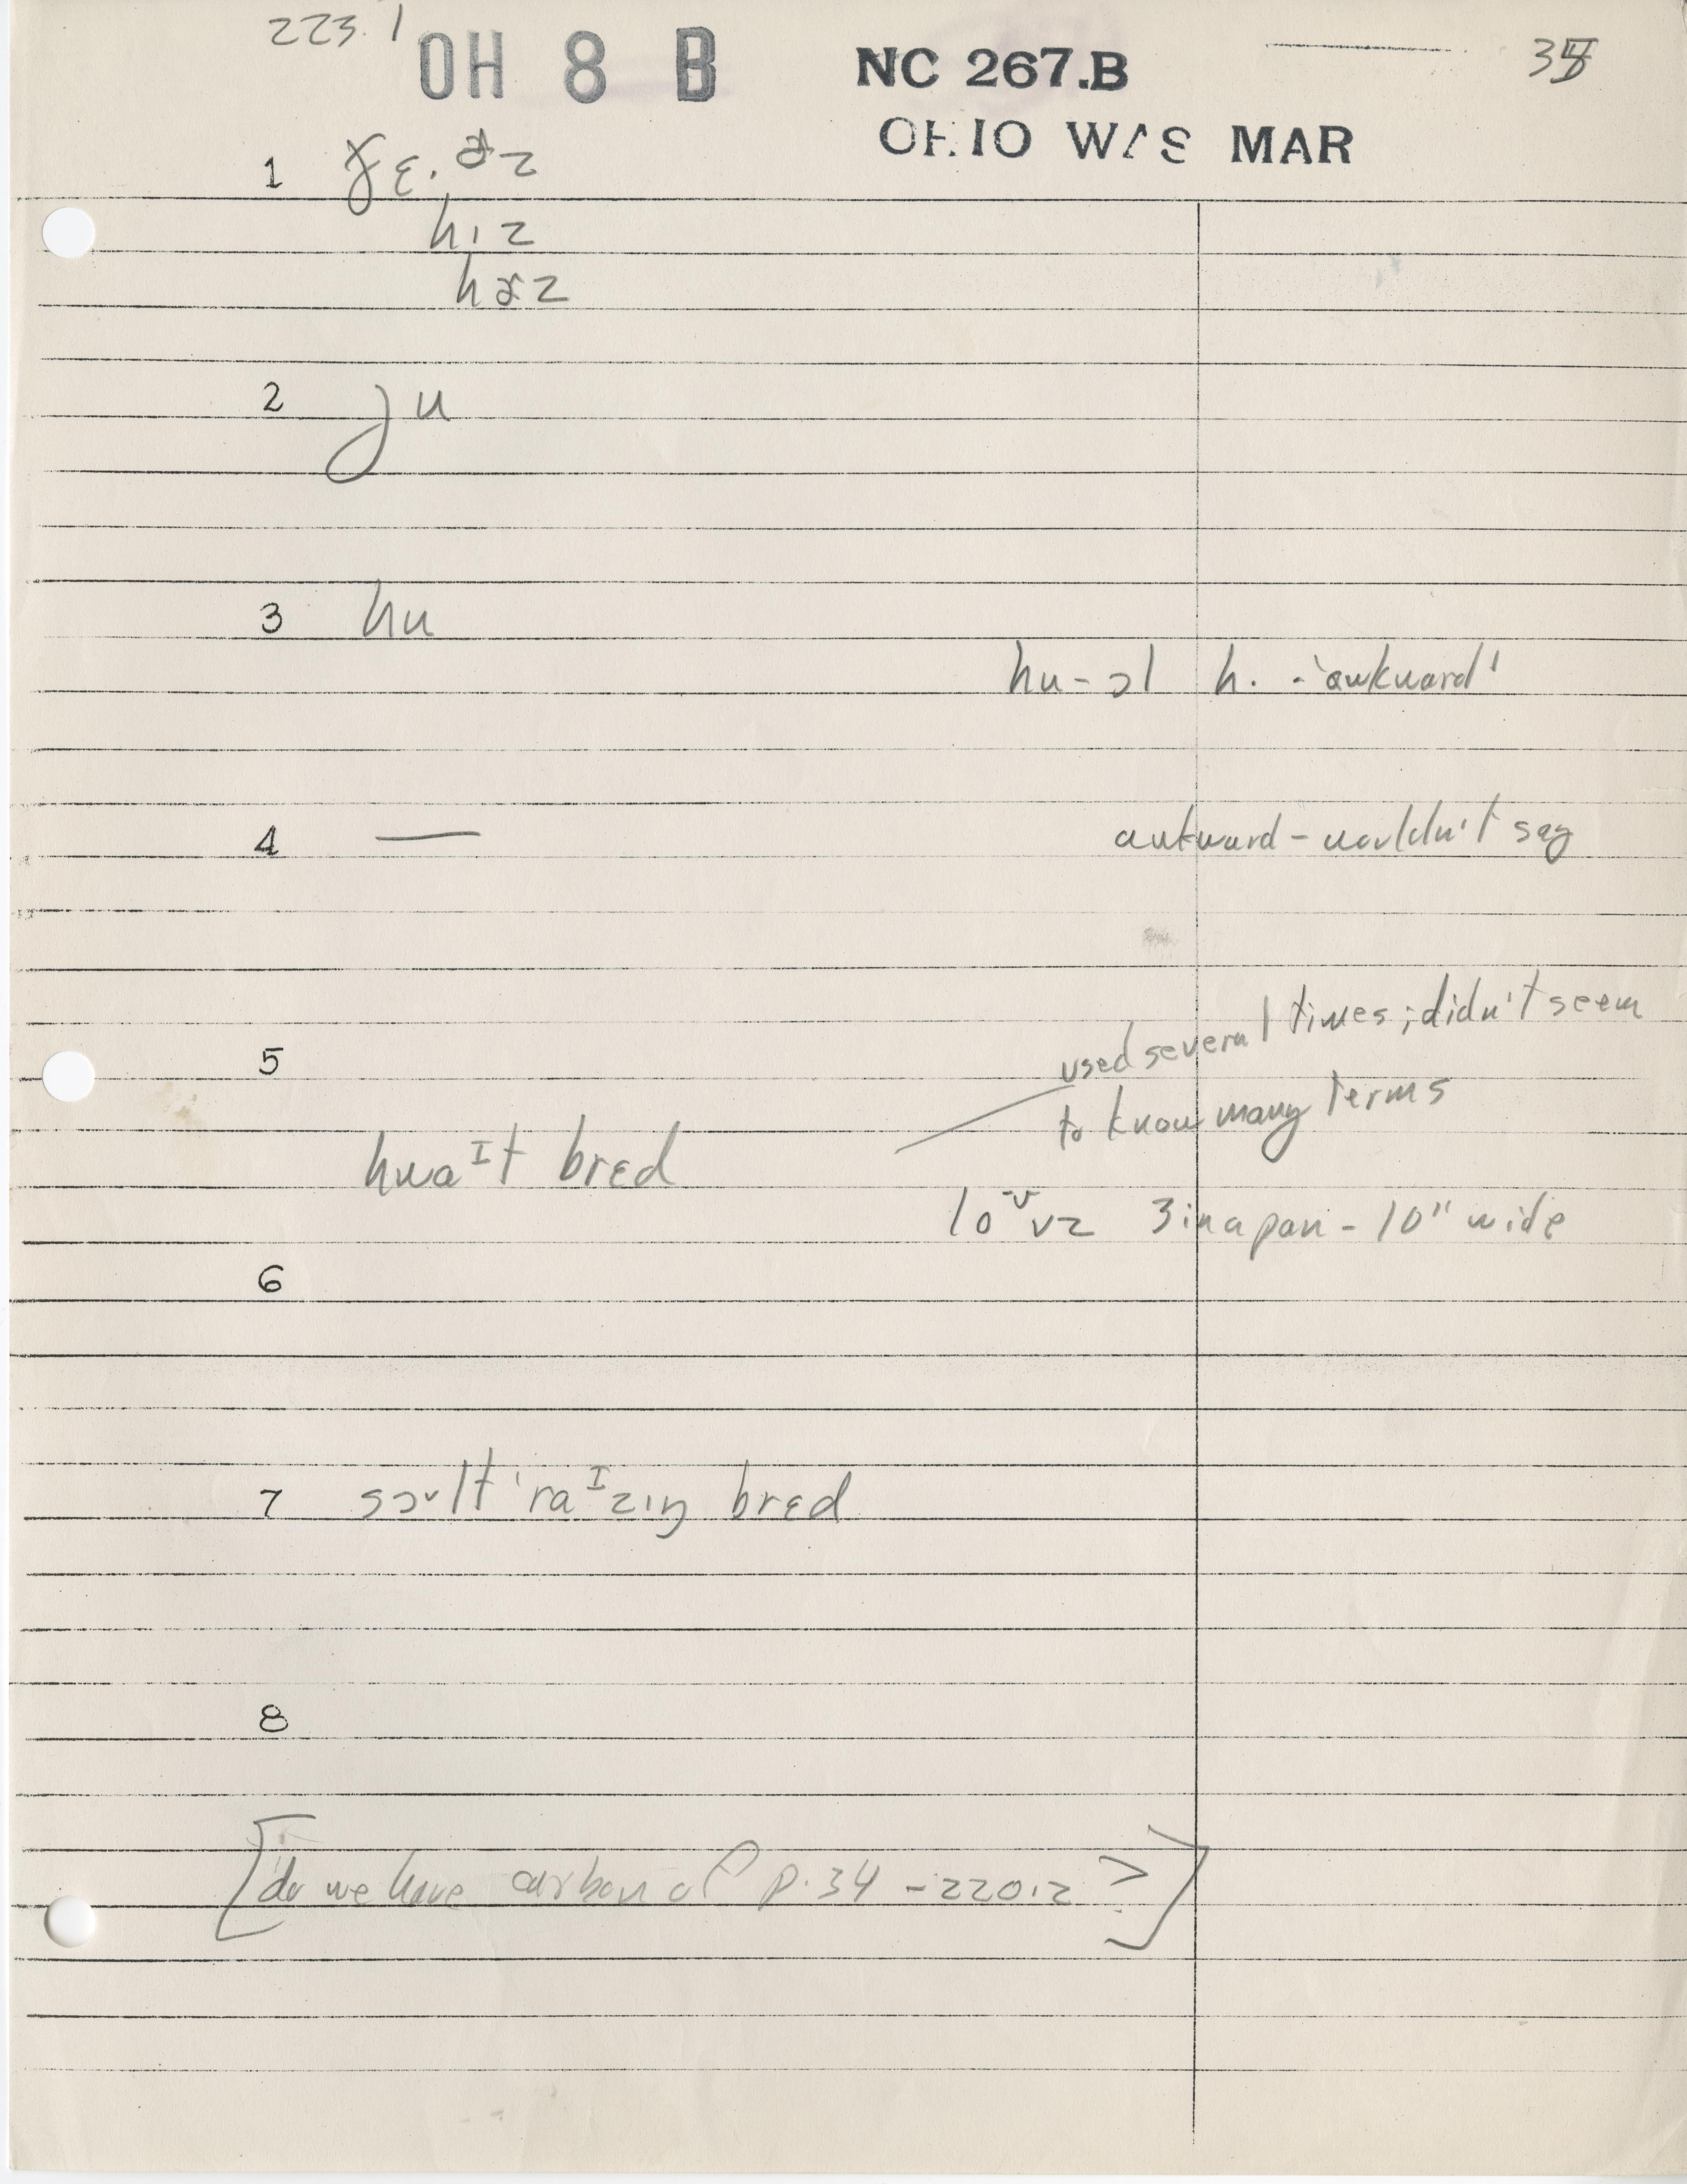 223.1
OH 8 B
NC 267.B
OHIO WAS MAR
1 ðɛ.ɚz
hɪz
hɚz
2 ju
3 hu
hu-ɔl h. - 'awkward'
4 —
awkward - wouldn't say
5
used several times; didn't seem
to know many terms
hwaᴵt brɛd
loᵛvz 3 in a pan - 10" wide
6
7 sɔ˅lt ˈraᴵzɪŋ brɛd
8
[do we have carbon of p. 34 - 220.2 ?]